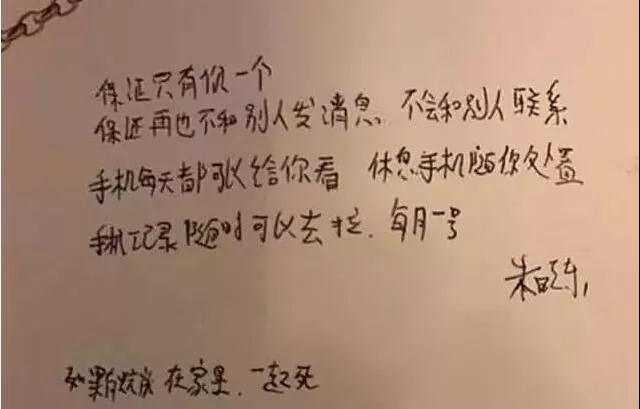 保证只有你一个
保证再也不和别人发消息 不会和别人联系
手机每天都可以给你看 休息手机随你处置
手机记录随时可以去拉.每月一号
朱晓东
如果 在家里.一起死